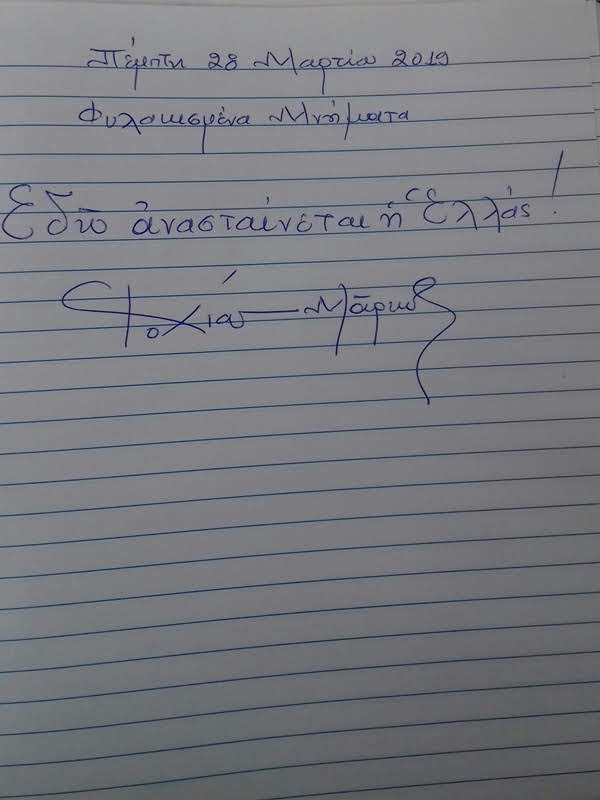 Πέμπτη 28 Μαρτίου 2019
Φυλακισμένα Μνήματα
Εδῶ ἀνασταίνεται ἡ Ἑλλάς!
Μάριος